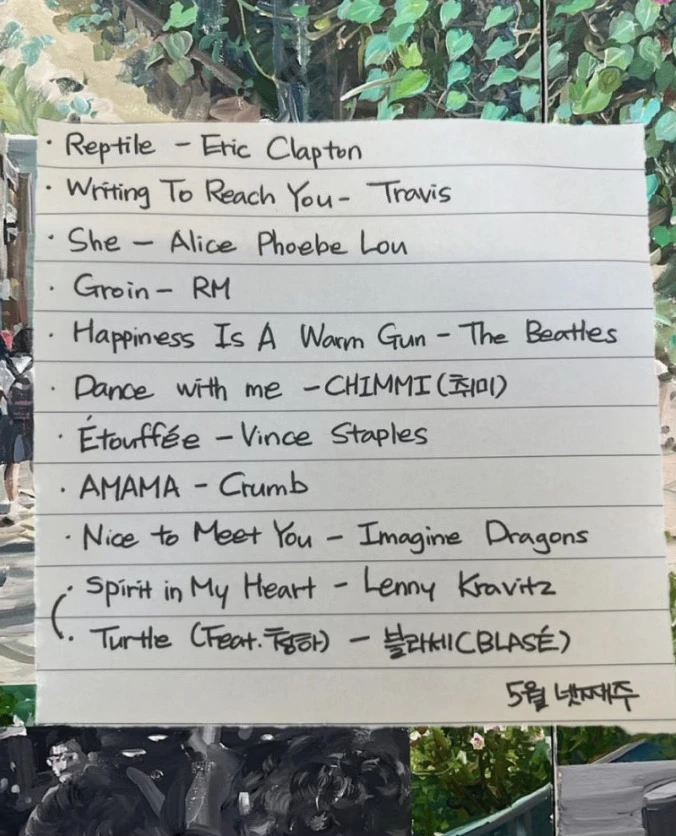 · Reptile - Eric Clapton
· Writing To Reach You - Travis
· She - Alice Phoebe Lou
· Groin - RM
· Happiness Is A Warm Gun - The Beatles
· Dance with me - CHIMMI (취미)
· Étouffée - Vince Staples
· AMAMA - Crumb
· Nice to Meet You - Imagine Dragons
· Spirit in My Heart - Lenny Kravitz
· Turtle (Feat. 청하) - 블라세 (BLASÉ)
5월 넷째주